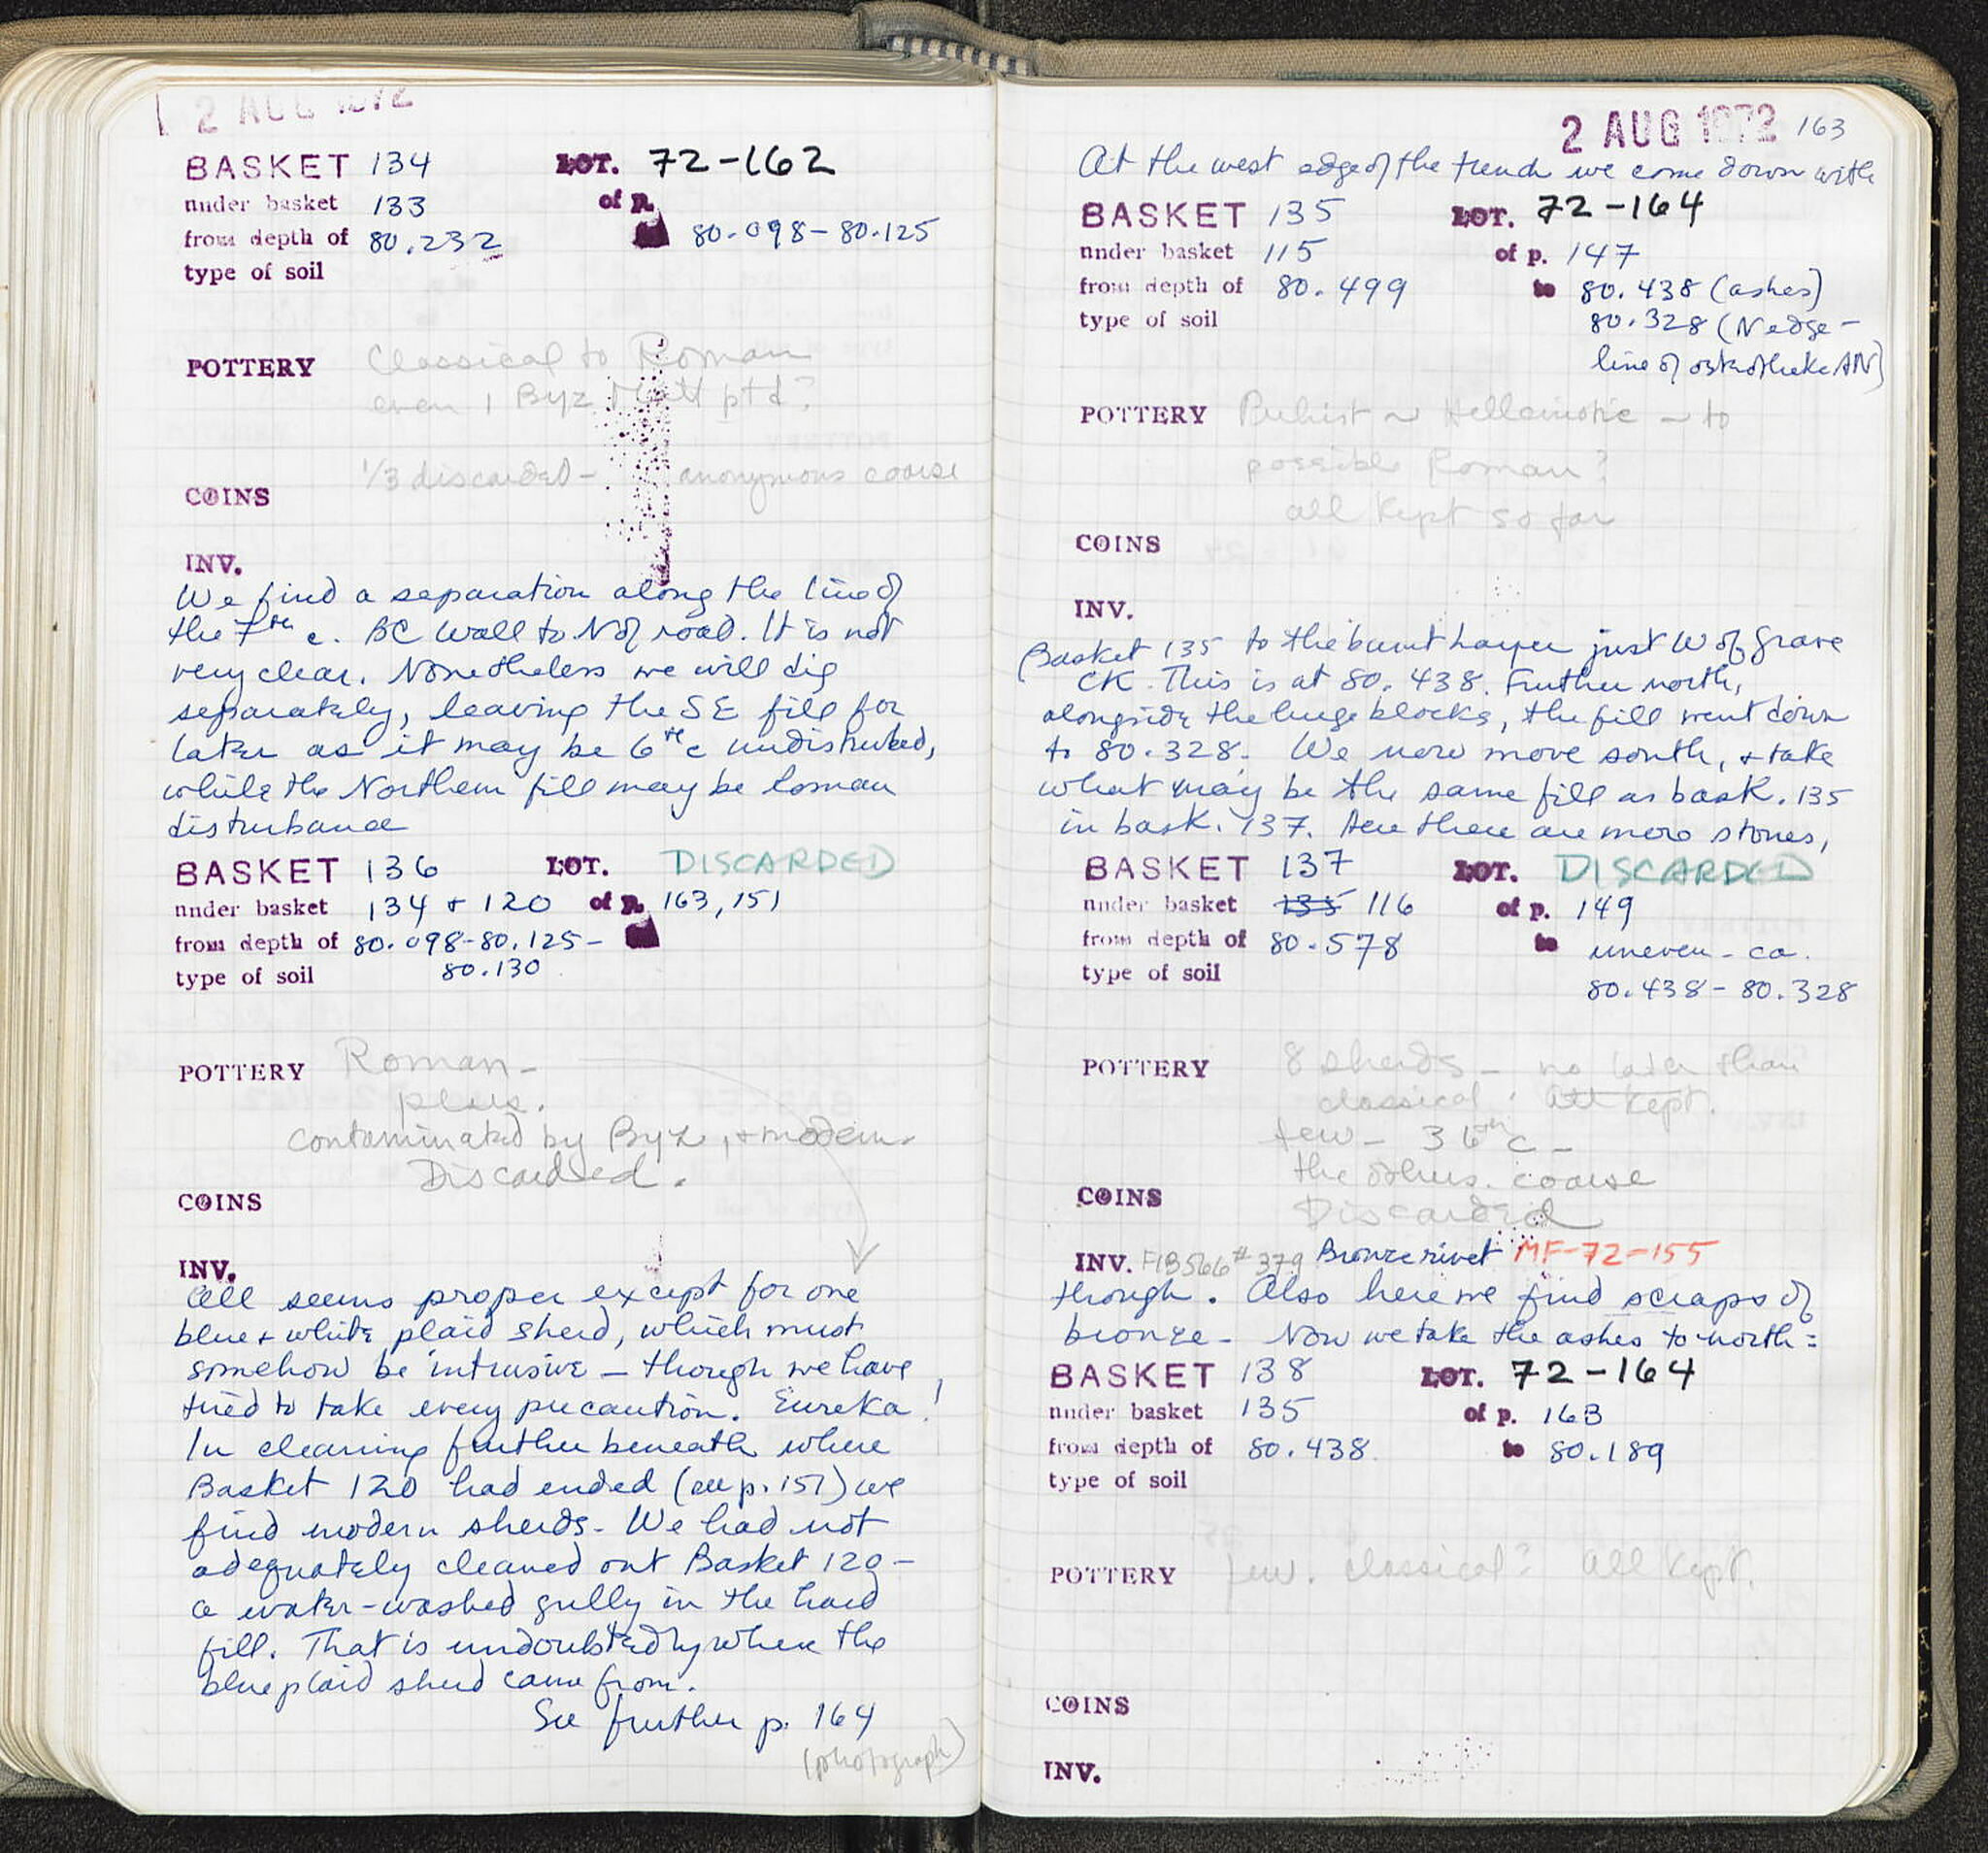 2 AUG 1972
BASKET 134 LOT. 72-162
under basket 133 of p.
from depth of 80.232 80.098-80.125
type of soil
POTTERY Classical to Roman
even 1 Byz Matt ptd?
1/3 discarded- anonymous coarse
COINS
INV.
We find a separation along the line of
the 7th c. BC Wall to N of road. It is not
very clear. Nonetheless we will dig
separately, leaving the SE fill for
later as it may be 6th c undisturbed,
while the Northern fill may be Roman
disturbance
BASKET 136 LOT. DISCARDED
under basket 134 + 120 of p. 163, 151
from depth of 80.098-80.125-
type of soil 80.130
POTTERY Roman-
plus.
contaminated by Byz, + modern.
Discarded.
COINS
INV.
All seems proper except for one
blue + white plaid sherd, which must
somehow be intrusive - though we have
tried to take every precaution. Eureka!
In cleaning further beneath where
Basket 120 had ended (see p. 151) we
find modern sherds. We had not
adequately cleaned out Basket 120 -
a water-washed gully in the hard
fill. That is undoubtedly where the
blue plaid sherd came from.
See further p. 164
(photograph)
2 AUG 1972 163
At the west edge of the trench we come down with
BASKET 135 LOT. 72-164
under basket 115 of p. 147
from depth of 80.499 to 80.438 (ashes)
type of soil 80.328 (N edge -
line of ostotheke AN)
POTTERY Prehist ~ Hellenistic ~ to
possible Roman?
all kept so far
COINS
INV.
Basket 135 to the burnt layer just W of grave
CK. This is at 80.438. Further north,
alongside the huge blocks, the fill went down
to 80.328. We now move south, + take
what may be the same fill as bask. 135
in bask. 137. Here there are more stones,
BASKET 137 LOT. DISCARDED
under basket 135 116 of p. 149
from depth of 80.578 to uneven - ca.
type of soil 80.438 - 80.328
POTTERY 8 sherds - no later than
classical. All kept.
few - 3 6th c -
the others. coarse
COINS Discarded
INV. FIB566 #379 Bronze rivet MF-72-155
though. Also here we find scraps of
bronze - Now we take the ashes to north:
BASKET 138 LOT. 72-164
under basket 135 of p. 163
from depth of 80.438 to 80.189
type of soil
POTTERY few. classical? All kept.
COINS
INV.